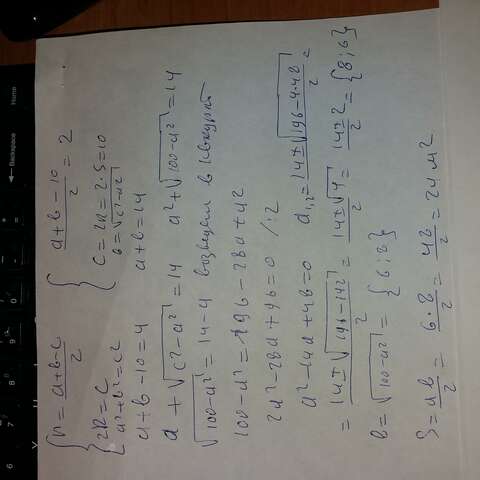 r = (a+b-c)/2   { (a+b-10)/2 = 2
{ 2R = c   { c = 2R = 2·5 = 10
a²+b² = c²   b = √(c²-a²)
a+b-10=4   a+b=14
a + √(c²-a²) = 14   a+√(100-a²) = 14
√(100-a²) = 14-a возведем в квадрат
100-a² = 196-28a+a²
2a²-28a+96=0 /:2
a²-14a+48=0   a₁,₂ = (14±√(196-4·48))/2 =
= (14±√(196-192))/2 = (14±√4)/2 = (14±2)/2 = {8;6}
b = √(100-a²) = {6;8}
S = ab/2 = 6·8/2 = 48/2 = 24 м²
Home
Backspace